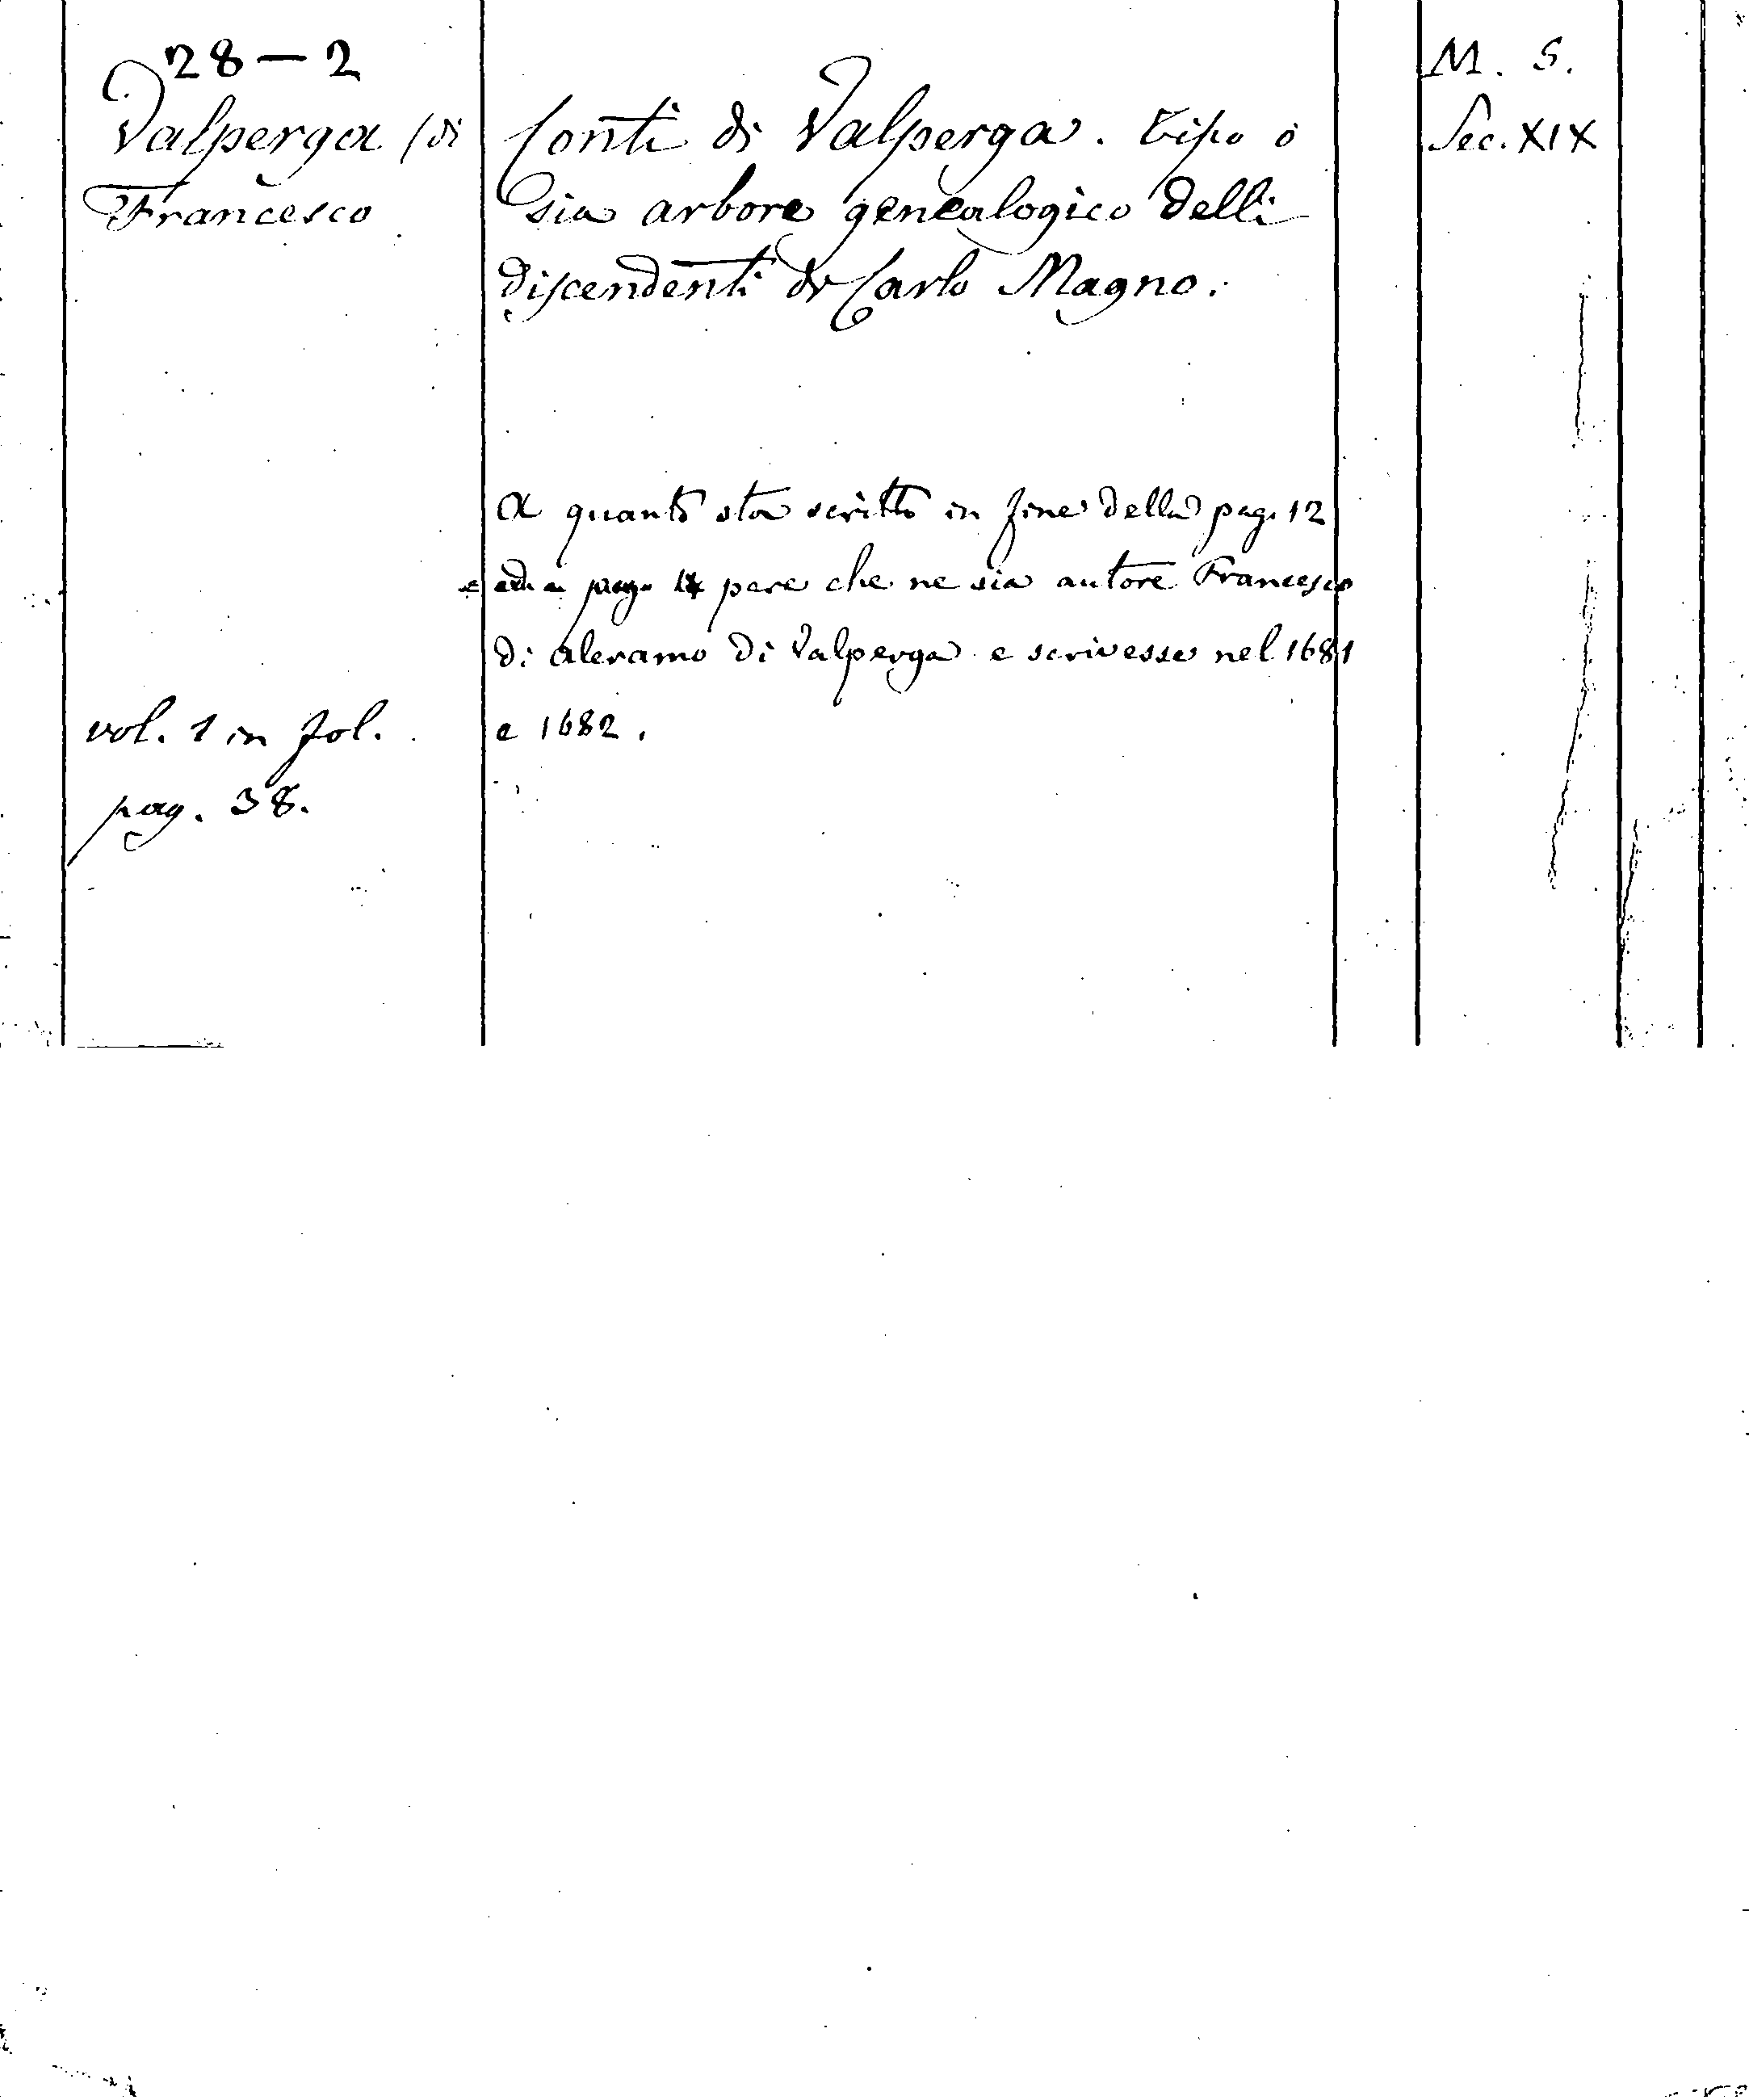 28 — 2
Valperga (di
Francesco
vol. 1 in fol.
pag. 38.
Conti di Valperga. Tipo ò
sia arbore genealogico delli
discendenti di Carlo Magno.
A quanto sta scritto in fine della pag. 12
pare che ne sia autore Francesco
di Aleramo di Valperga e scrivesse nel 1681
e 1682.
M. S.
Sec. XIX